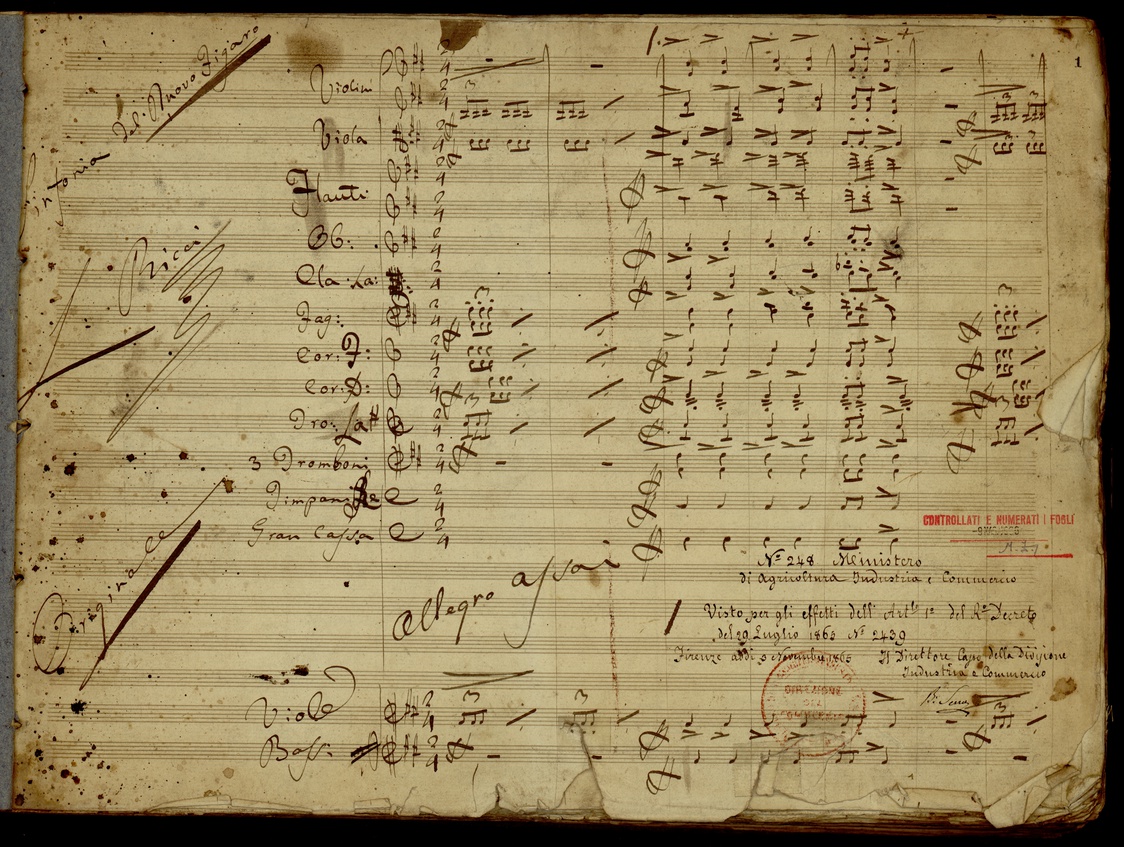 Sinfonia del Nuovo Figaro
Ricci
Originale
1
Violini
Viola
Flauti
Ob:
Cla: La:
Fag:
Cor: F:
Cor: D:
Tro: La#
3 Tromboni
Timpani Re
Gran Cassa
Allegro assai
Viole
Bassi
CONTROLLATI E NUMERATI I FOGLI
Nº 248 Ministero
di Agricoltura Industria e Commercio
Visto per gli effetti dell' Artº 1º del Rº Decreto
del 29 Luglio 1865 Nº 2439
Firenze addì 5 Novembre 1865 Il Direttore Capo della Divisione
Industria e Commercio
DIREZIONE
DEL
COMMERCIO